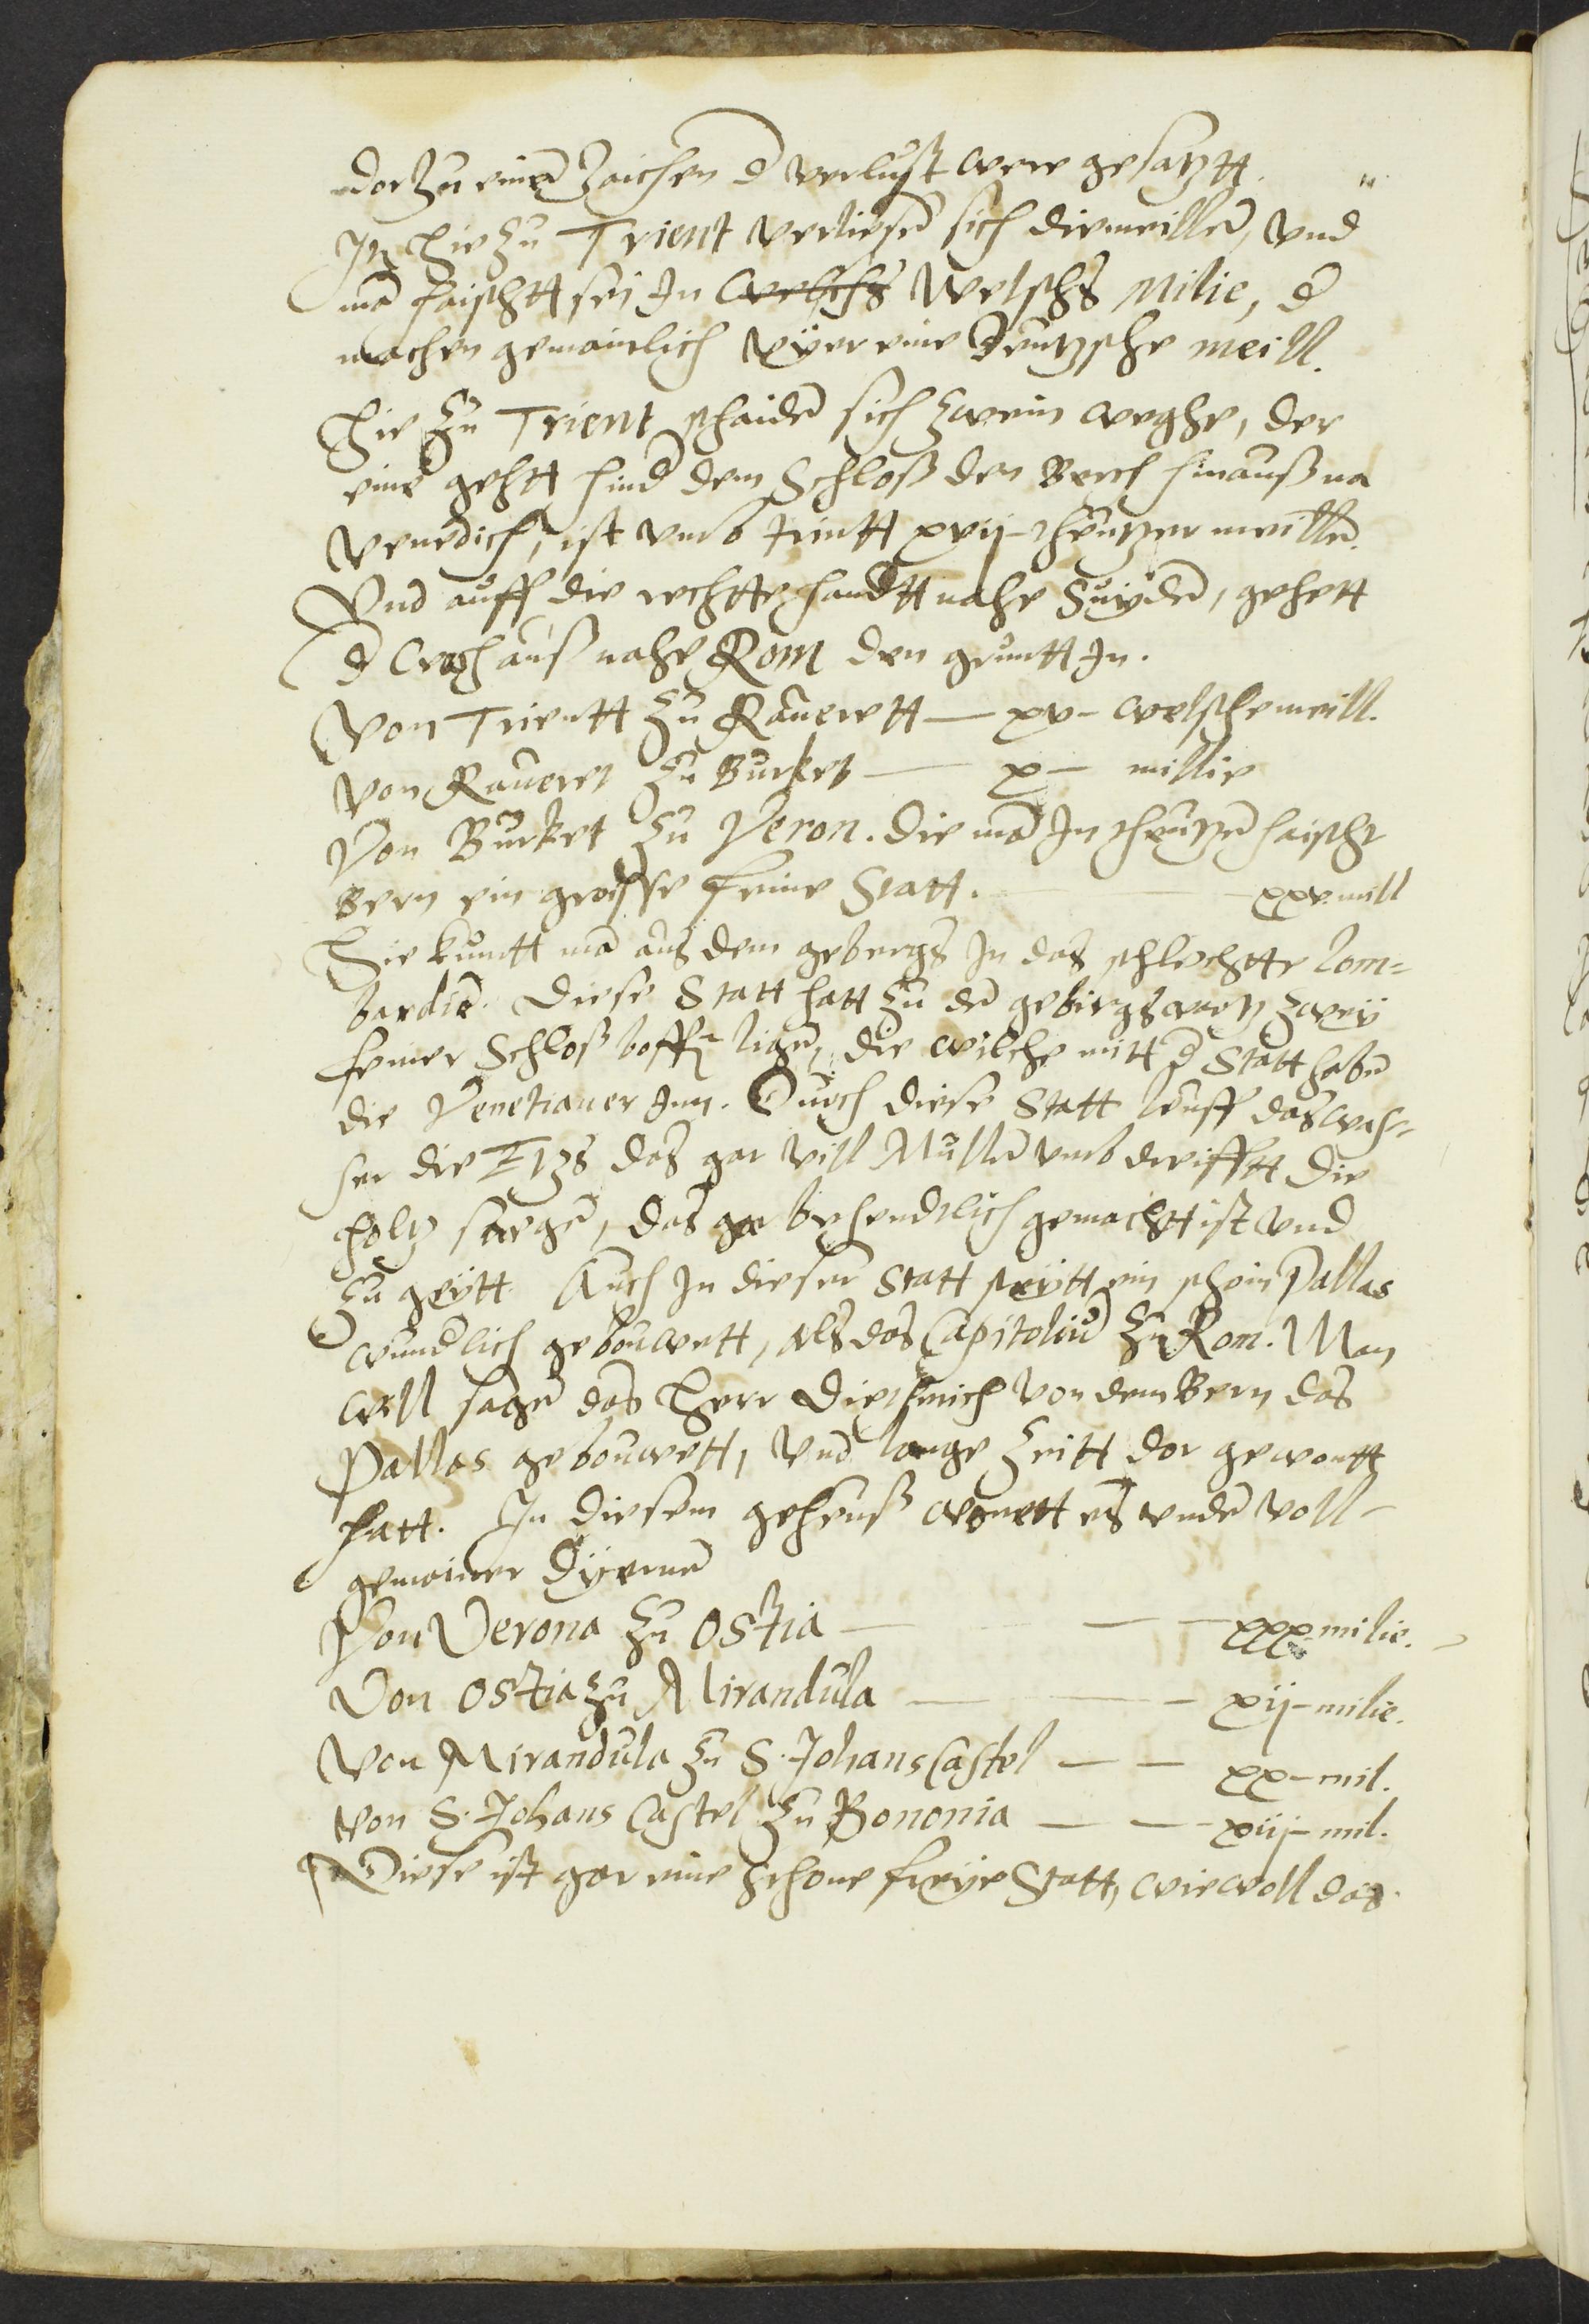 dar Zu einē Zaichen d̄ verlust were gesatztt.
Itz Hie Zu Trient verliesē sich die meillē, vnd
mā haischtt sei In welschs Welschs Milie, d̄
machen gemainlich vÿer eine Deutzsche meill.
Hie Zu Trient schaidē sich zwein weghe, der
eine gehtt hind̄ dem Schloß den Berch hinauß na
Venedich, ist vmb trintt xvij theutzer meillē.
Vnd auff die rechtte handtt nahe Suÿdē, gehett
d̄ Wech auß nahe Rom den gruntt In.
Von Trientt Zu Rauerett — xv – welsche meill.
Von Raueret Zu Burket — x – millie
Von Burket Zu Veron. die mā In theutzē haischt
Bern ein groesse feine Statt. — xxv. mill
Hie kumtt mā aus dem gebergs In das schlechtte lom=
bardiē. Diese Statt hatt Zu dē gebirgs wertz zweÿ
feiner Schloß boffē ligē, die wilche mitt d̄ Statt habē
die Venetianer Inn. Durch diese Statt leuff das was=
ser die Etzs das gar vill Mullē vmb dreifftt die
holtz sarge, das gar behendtlich gemachtt ist vnd
Zu geÿtt. Auch In dieser Statt steÿtt ein schoin Pallas
wund̄lich gebouwett, als das Capitoliū Zu Rom. Man
will sagē das Herr Dietherich von dem Bern das
Pallas gebouwett, vnd lange Zeitt dar gewontt
hatt. In diesem geheuß wonett es vndē voll
gemainer Dÿernē
Von Verona Zu Ostia — — xxx milie.
Von Ostia zu Mirandula — — xij – milie.
Von Mirandula Zu S. Johans Castel — — xx – mil.
Von S. Johans Castel Zu Bononia — — xiij – mil.
Diese ist gar eine schone freÿe Statt, wiewoll das